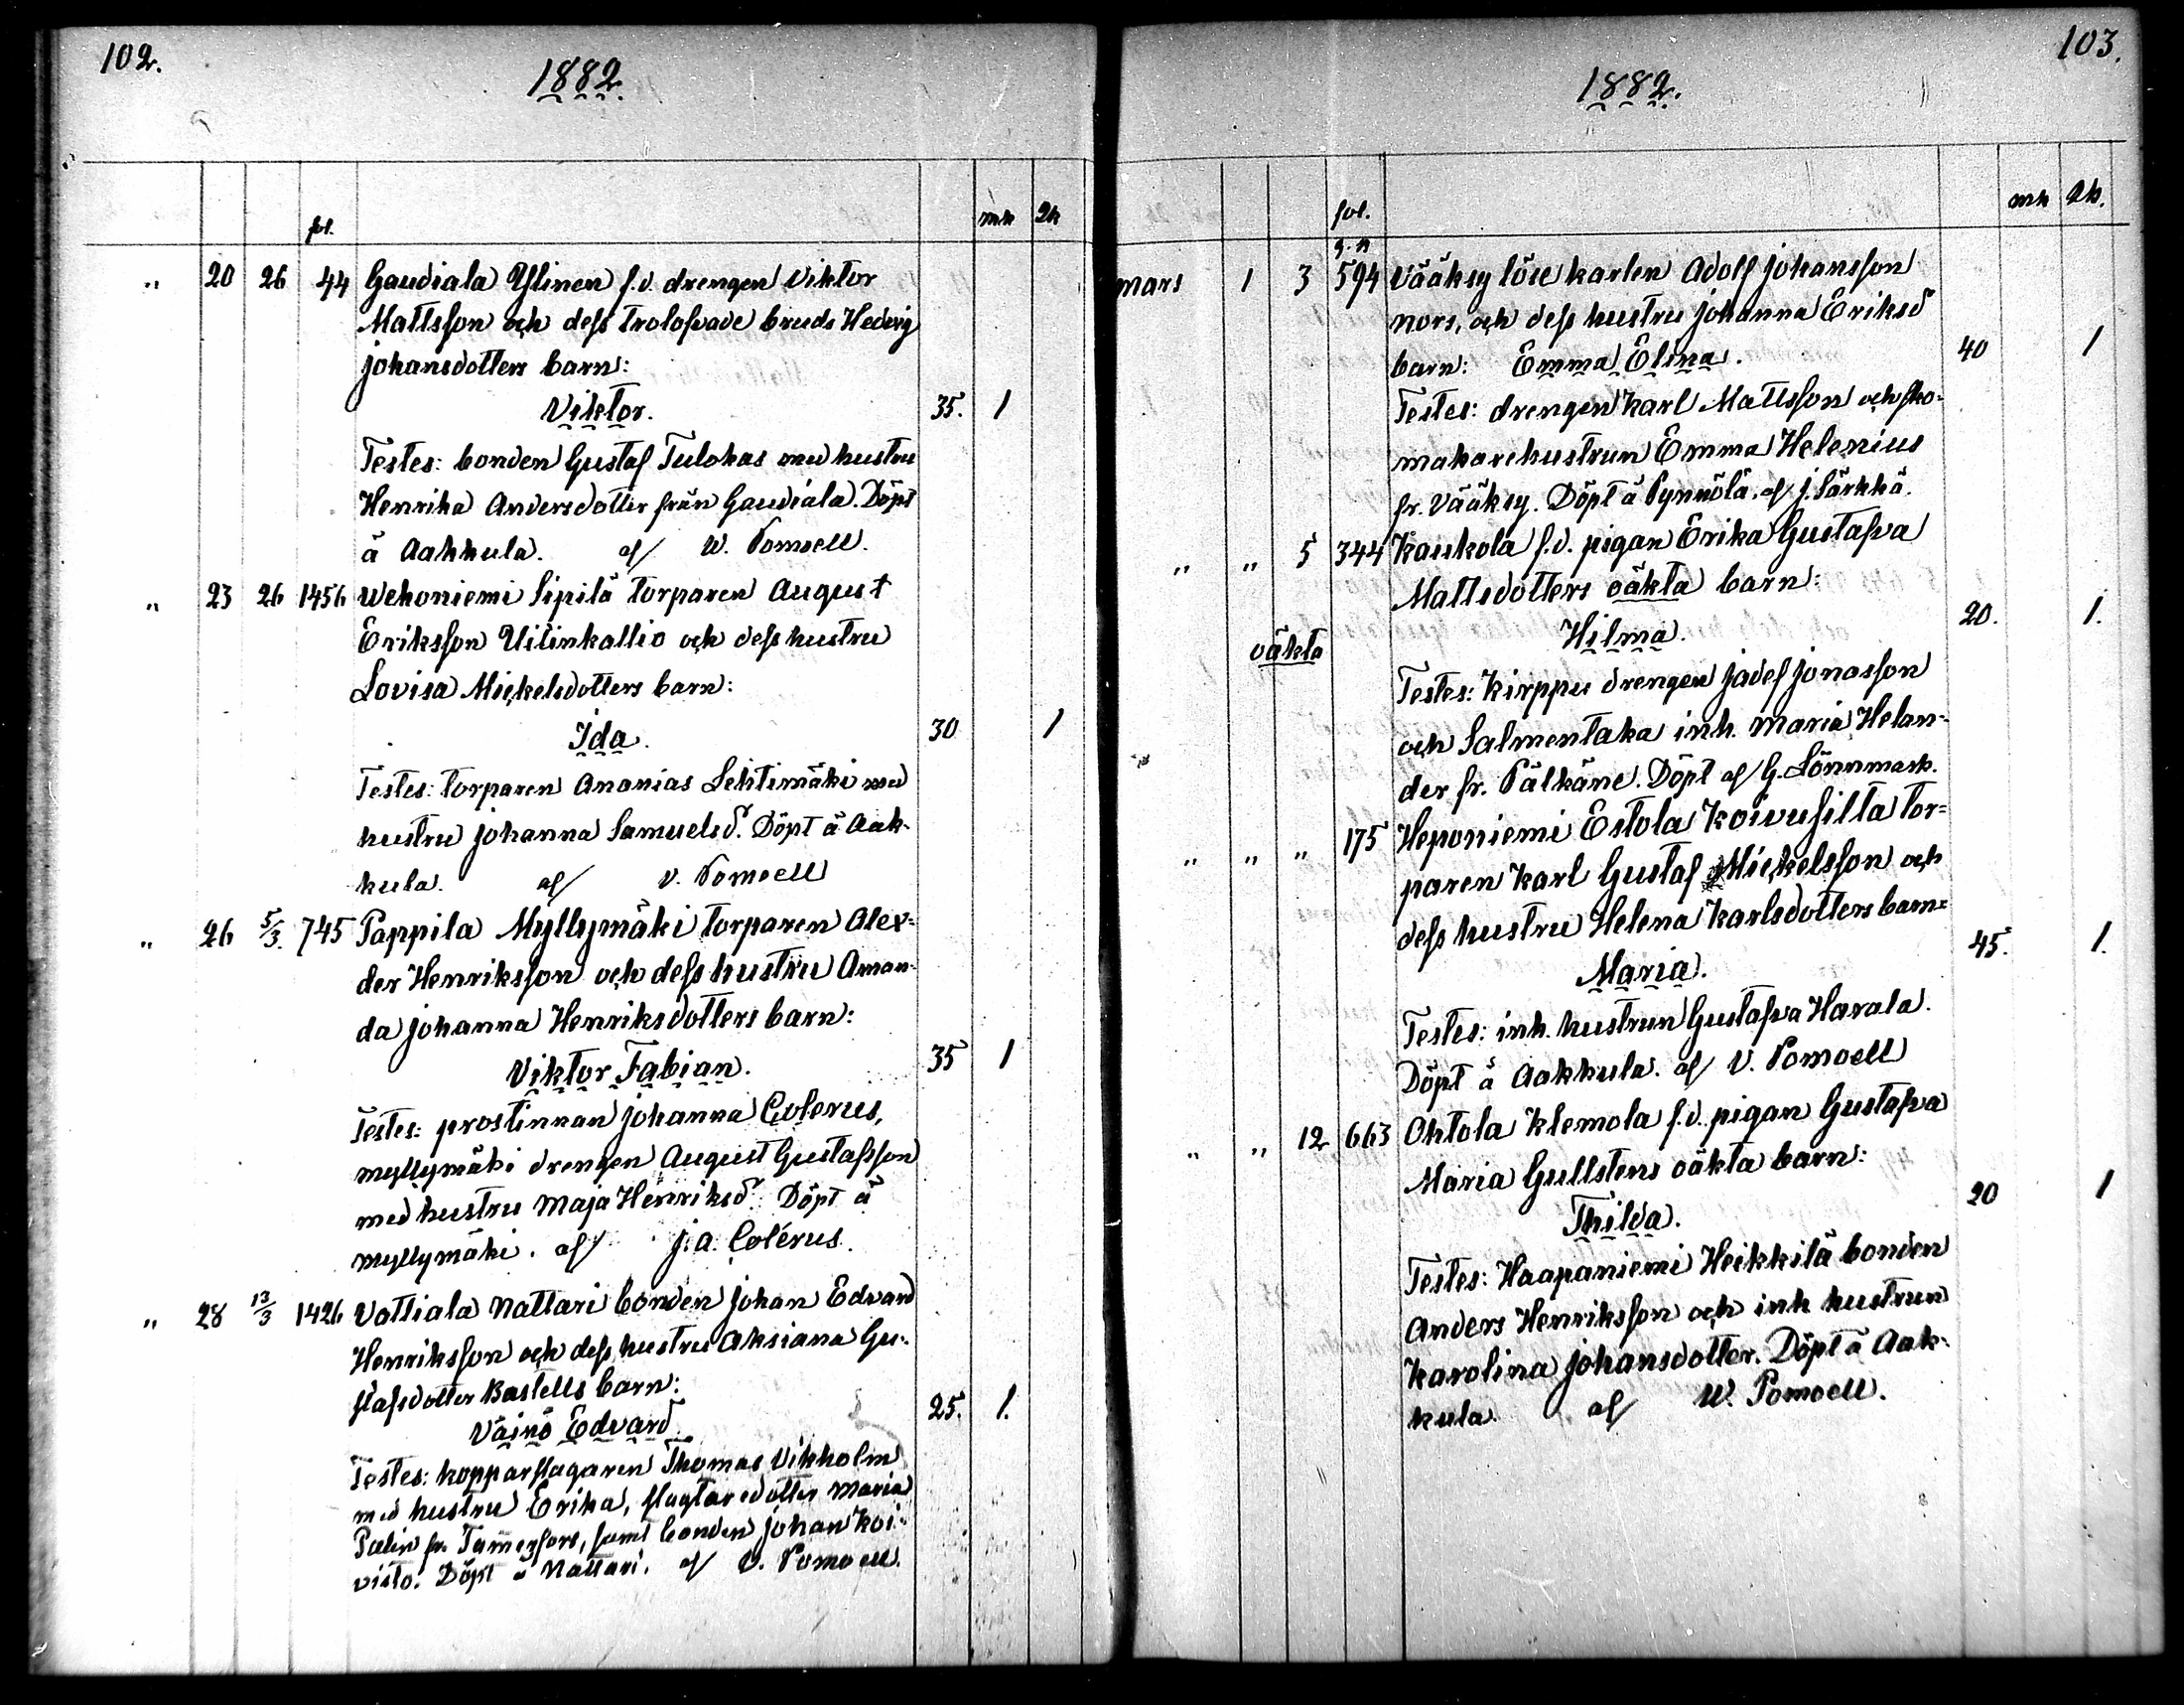 102.
1882.
fol. mk qk
" 20 26 44 Gaudiala Ylinen f.d. drengen Viktor
Mattsson och dess trolofvade bruds Hedvig
Johansdotters barn:
Viktor. 35. 1
Testes: bonden Gustaf Tulokas med hustru
Henrika Andersdotter från Gaudiala. Döpt
å Aakkula. af W. Pomoell.
" 23 26 1456 Wehoniemi Sipilä torparen August
Eriksson Uitinkallio och dess hustru
Lovisa Mickelsdotters barn:
Ida. 30 1
Testes: torparen Ananias Lehtimäki med
hustru Johanna Samuelsd. Döpt å Aak-
kula. af V. Pomoell
" 26 5/3. 745 Pappila Myllymäki torparen Alex-
der Henriksson och dess hustru Aman-
da Johanna Henriksdotters barn:
Viktor Fabian. 35 1
Testes: prostinnan Johanna Colerus,
myllymäki drengen August Gustafsson
med hustru Maja Henriksd. Döpt å
myllymäki. af J.A. Colérus.
" 28 13/3 1426 Vottiala Nattari bonden Johan Edvard
Henriksson och dess hustru Aksiana Gu-
stafsdotter Bastells barn:
Väinö Edvard 25. 1.
Testes: kopparslagaren Thomas Vikholm
med hustru Erika, slagtaredotter Maria
Palin fr. Tammerfors, samt bonden Johan Koi-
visto. Döpt å Nattari. af V. Pomoell.
103.
1882.
fol. mk qk.
mars 1 3 594 Vääksy löse karlen Adolf Johansson
Nors, och dess hustru Johanna Eriksd
barn: Emma Elina. 40 1
Testes: drengen Karl Mattsson och sko-
makarehustrun Emma Helenius
fr. Vääksy. Döpt å Pynnölä. af J. Särkkä.
" " 5 344 Kaukola f.d. pigan Erika Gustafva
Mattsdotters oäkta barn:
oäkta Hilma. 20. 1.
Testes: Kirppu drengen Jadef Jonasson
och Salmentaka inh. Maria Helan-
der fr. Pälkäne. Döpt af G. Lönnmark.
" " " 175 Heponiemi Estola Koivusilta tor-
paren Karl Gustaf Mickelsson och
dess hustru Helena Karlsdotters barn:
Maria. 45. 1.
Testes: inh. hustrun Gustafva Harala.
Döpt å Aakkula. af V. Pomoell
" " 12 663 Ohtola Klemola f.d. pigan Gustafva
Maria Gullstens oäkta barn:
Thilda. 20 1
Testes: Haapaniemi Heikkilä bonden
Anders Henriksson och inh hustrun
Karolina Johansdotter. Döpt å Aak-
kula. af W. Pomoell.